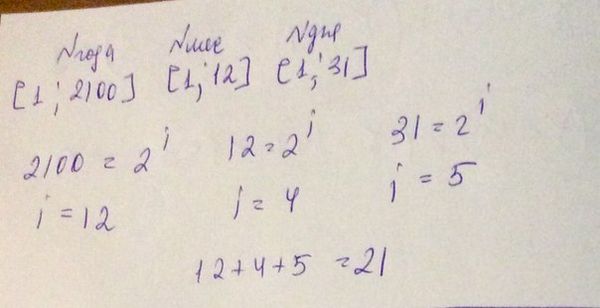 Nгода Nмес Nдня
[1; 2100] [1; 12] [1; 31]
2100 = 2^i 12 = 2^i 31 = 2^i
i = 12 i = 4 i = 5
12+4+5 = 21